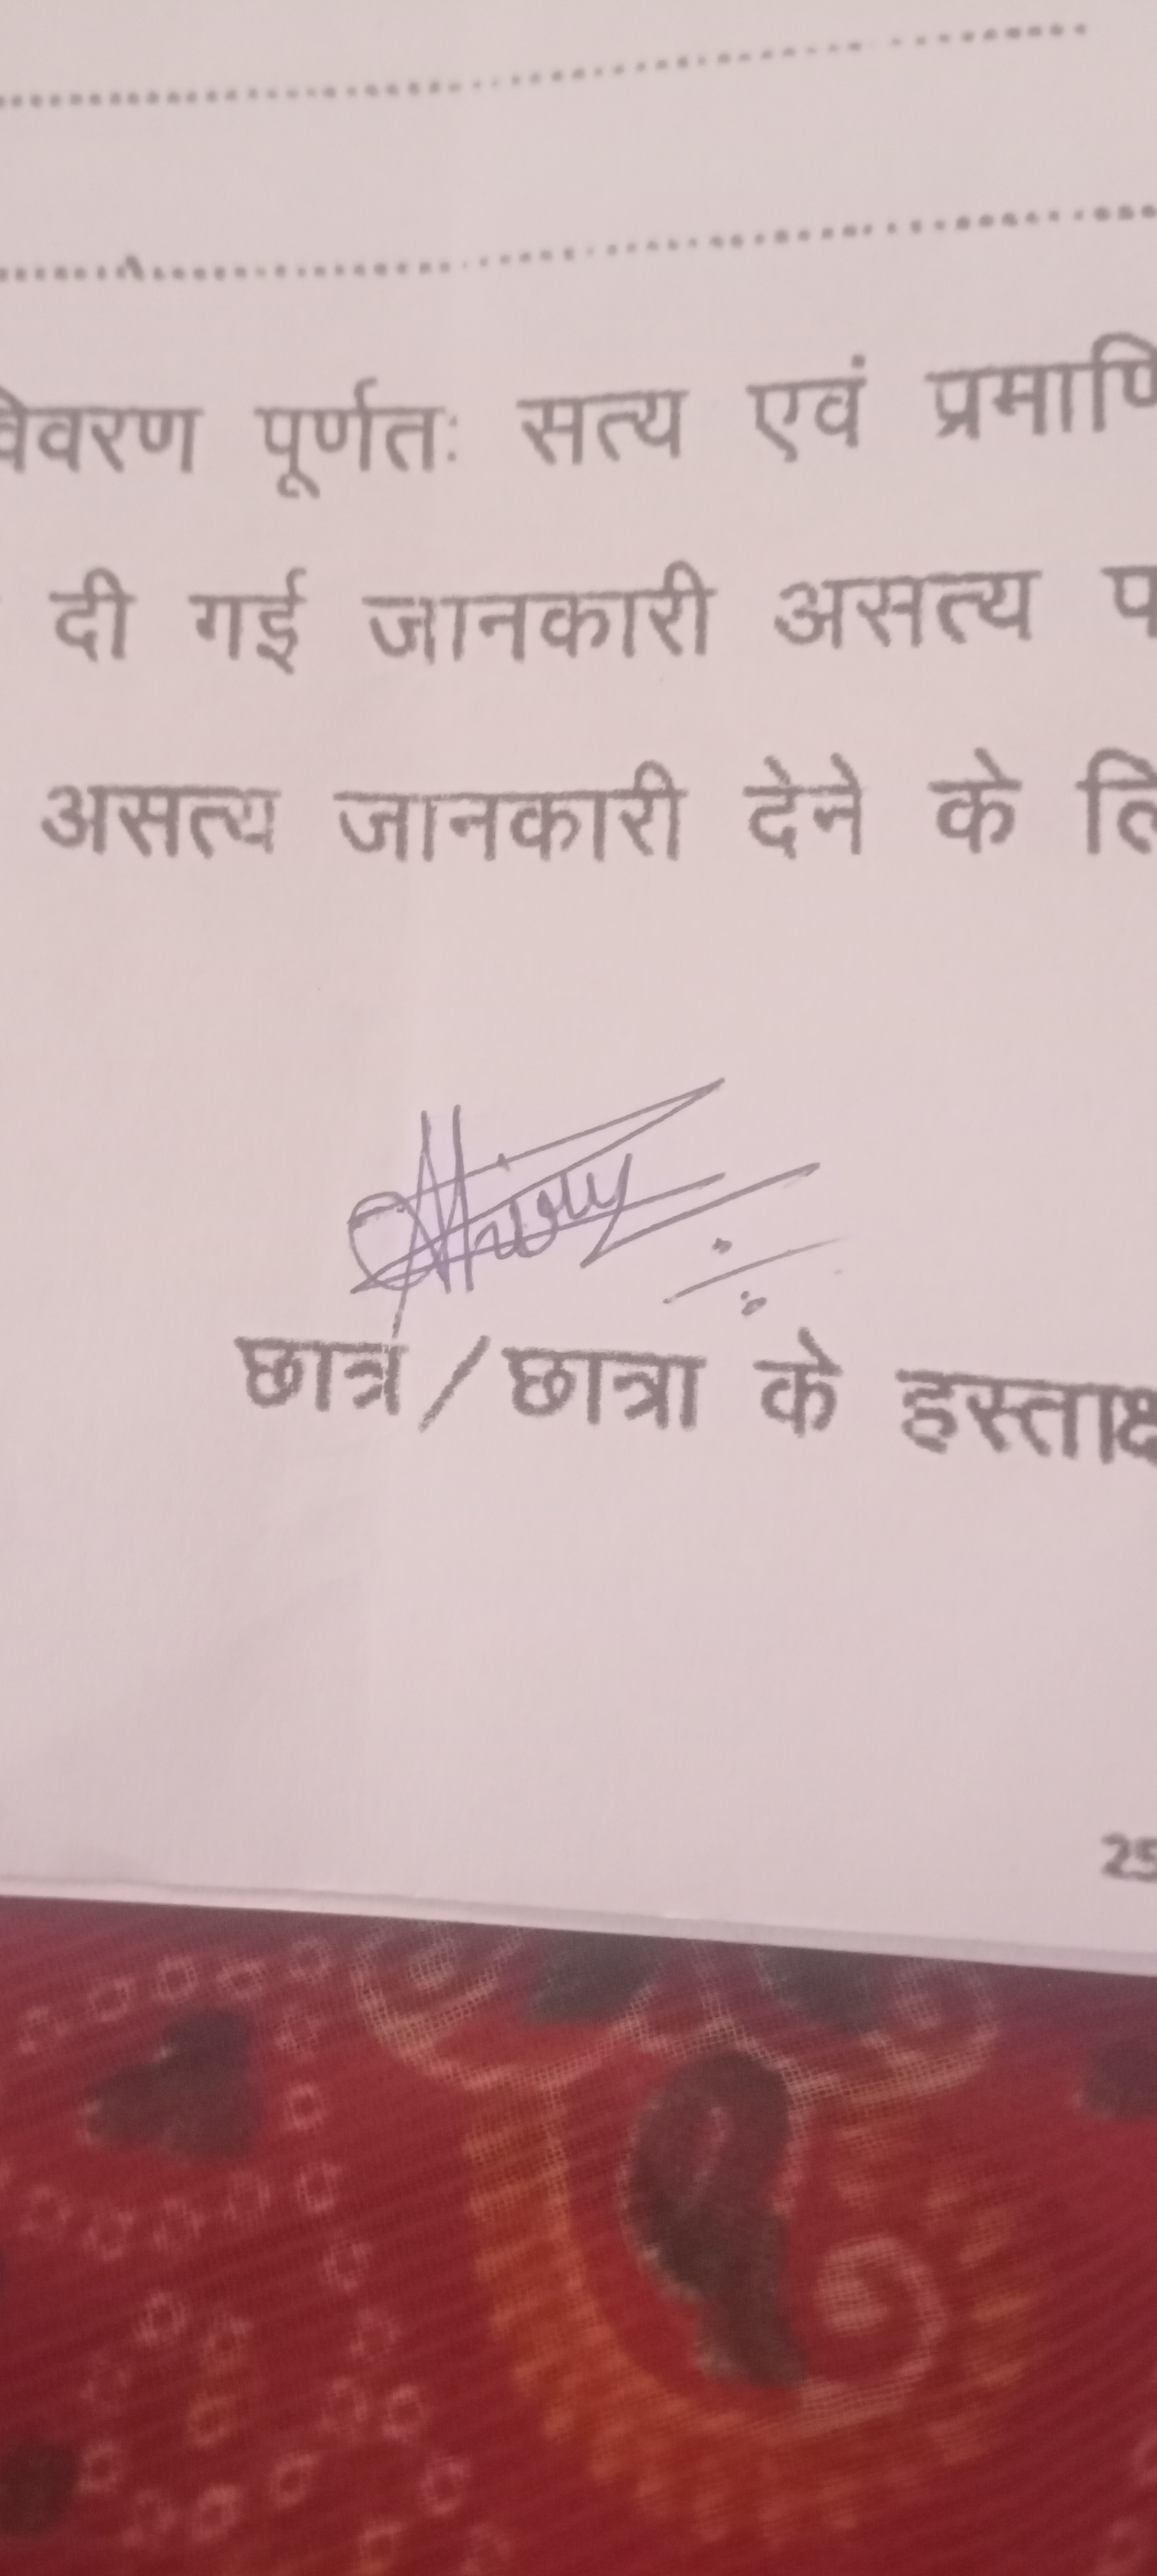 विवरण पूर्णतः सत्य एवं प्रमाणि
दी गई जानकारी असत्य प
असत्य जानकारी देने के लि
छात्र/छात्रा के हस्ताक्ष
25